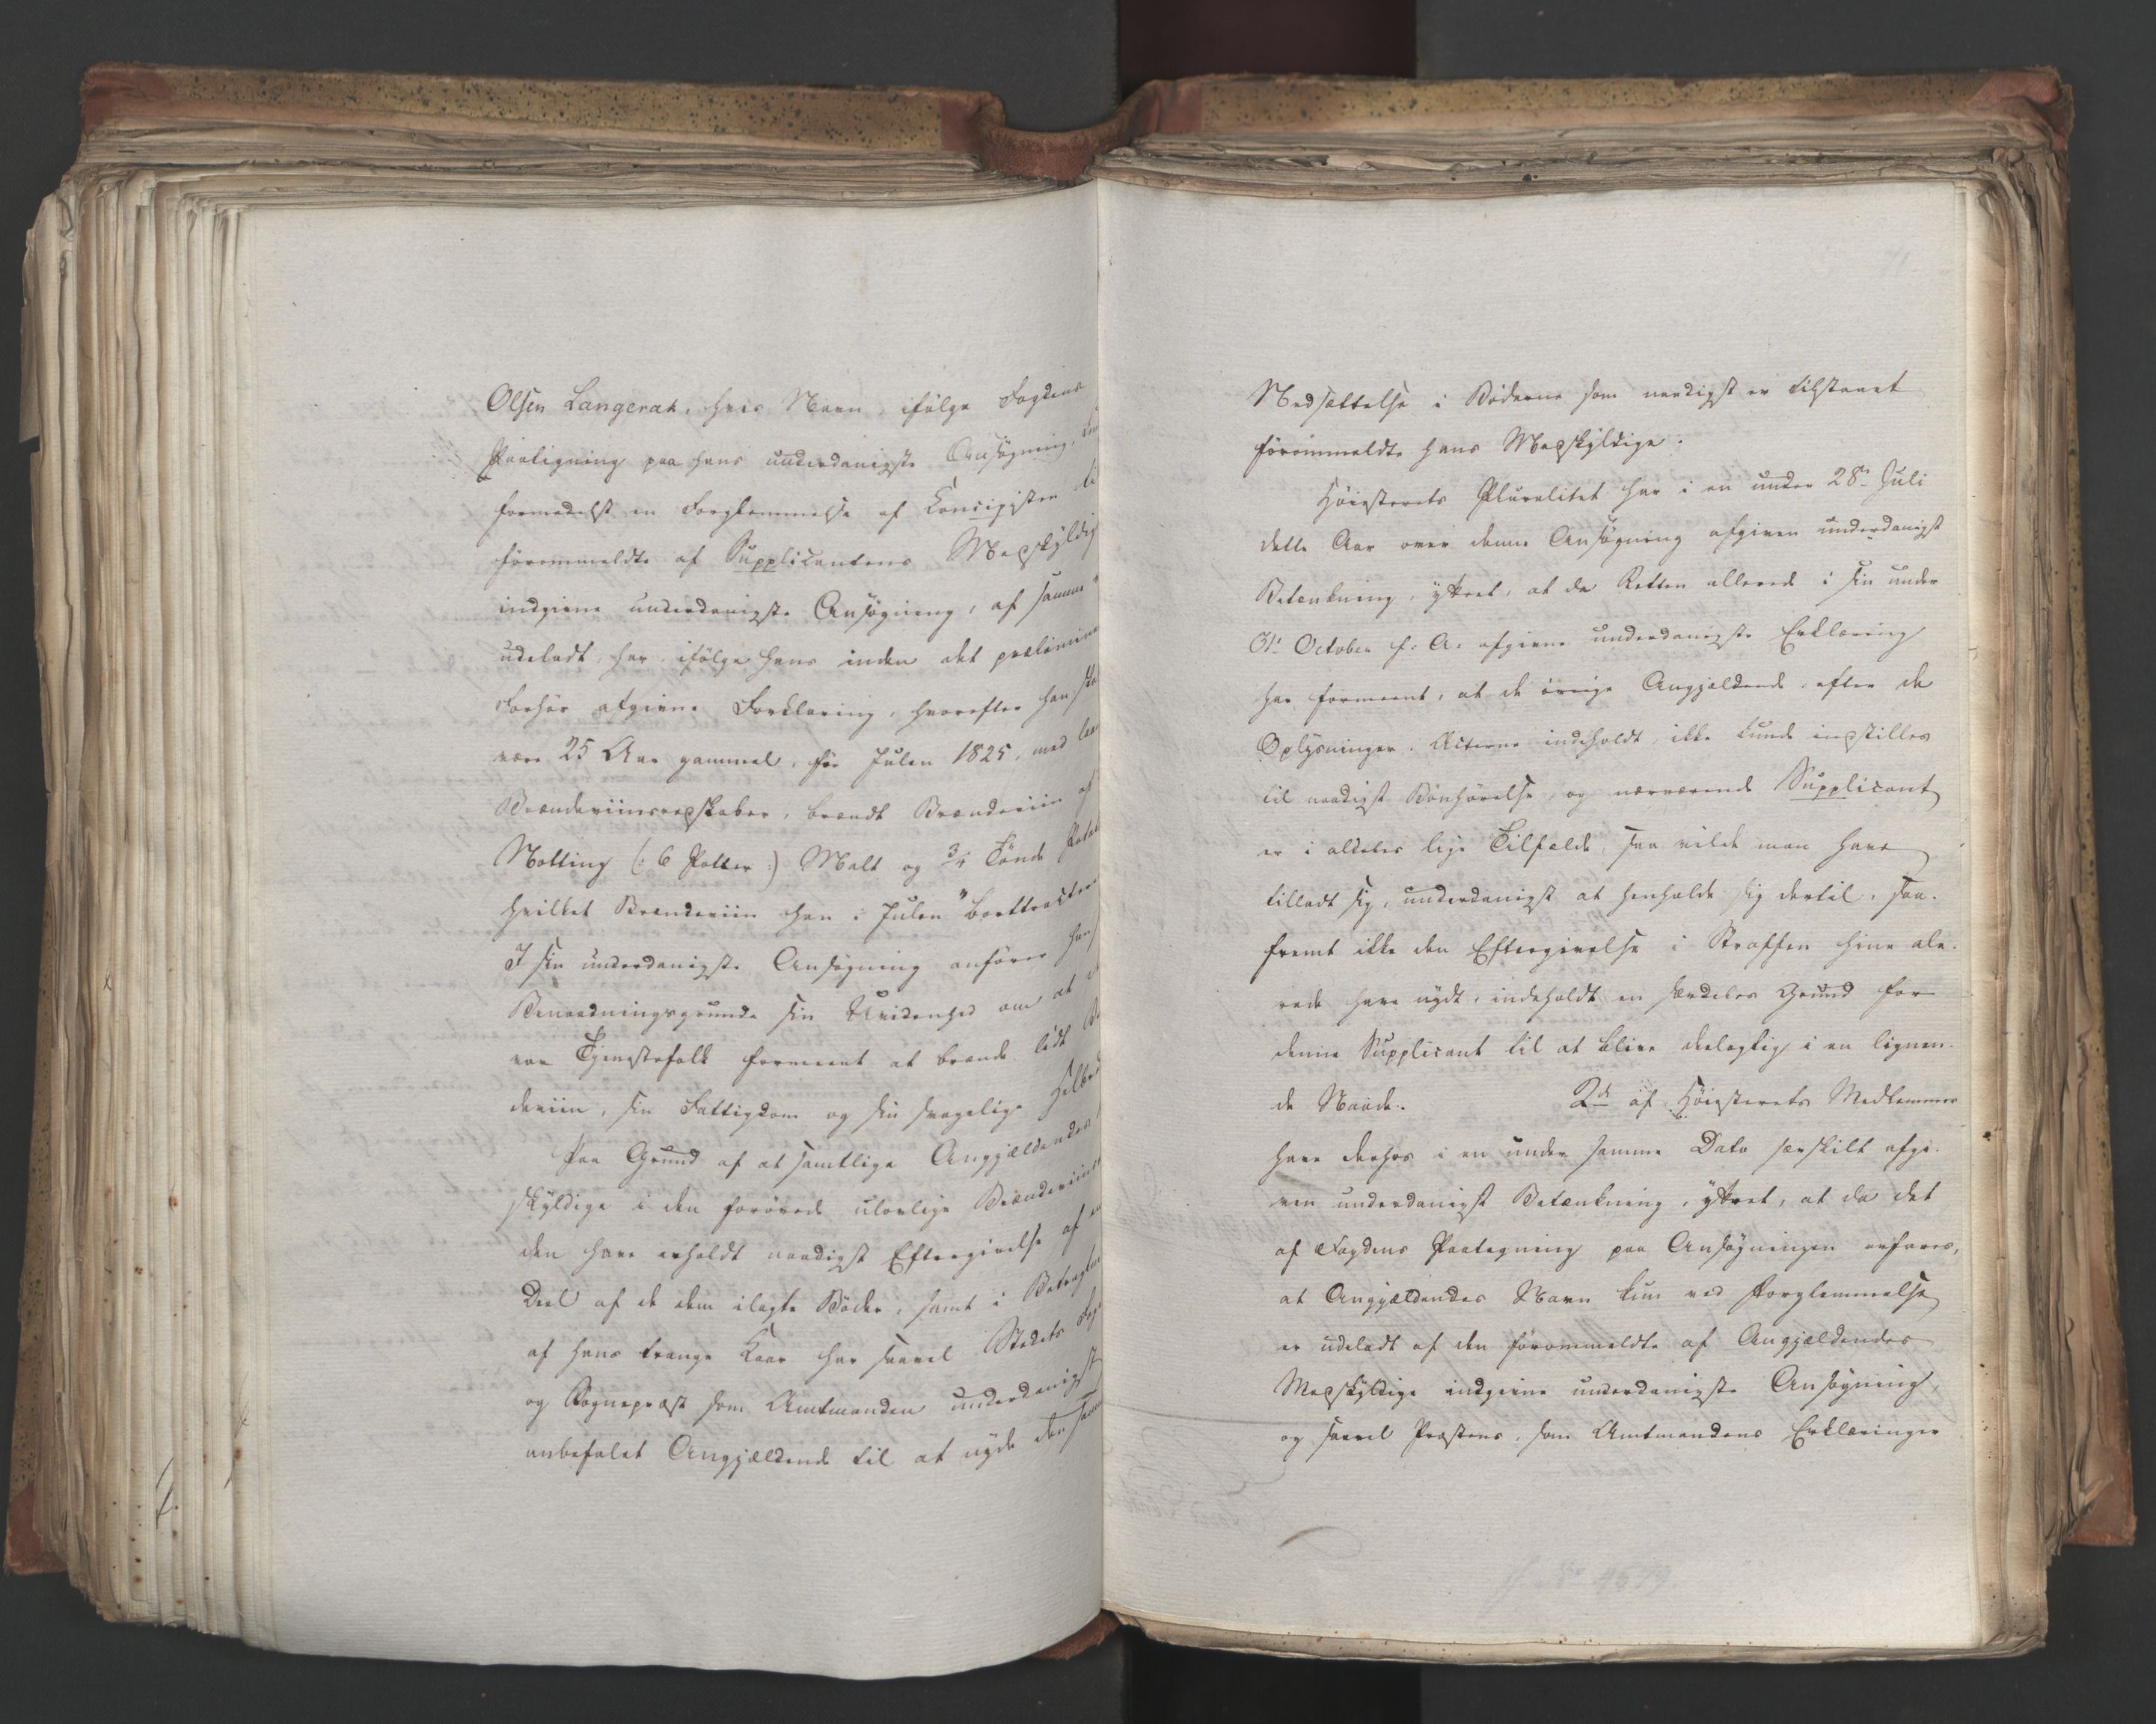 Olsen Langerak, hvis Navn, ifølge Fogdens
Paategning paa hans underdanigste Ansøgning,
formedelst en Forglemmelse af Koncipisten
førommeldte af Supplicantens Medskyldig
indgivne underdanigste Ansøgning, af samme
udeladt, har, ifølge hans inden det prælimin
Forhør afgivne Forklaring, hvorefter han
være 25 Aar gammel, før Julen 1825, med
Brændeviinsredskaber, brændt Brændeviin af
Notting (: 6 Potter :) Malt og 3/4 Tønde
hvilket Brændeviin han i Julen "borttracter
I sin underdanigste Ansøgning anfører han
Benaadningsgrunde sin Uvidenhed om at
var Tjenestefolk formeent at brænde lidt
deviin, sin Fattigdom og sin svagelige Helbred
Paa Grund af at samtlige Angjældendes
skyldige i den forøvede ulovlige Brændeviins
den have erholdt naadigst Eftergivelse af en
Deel af de dem ilagte Bøder, samt i Betragtn
af hans trange Kaar har saavel Stedets Fog
og Sognepræst som Amtmanden underdanigst
anbefalet Angjældende til at nyde den samme
Nedsættelse i Bøderne som naadigst er tilstaaet
førommeldte hans Medskyldige.
Høiesterets Pluralitet har i en under 28de Juli
dette Aar over denne Ansøgning afgiven underdanigst
Betænkning, yttret, at da Retten allerede i sin under
31te October f: A: afgivne underdanigste Erklæring
har formeent, at de øvrige Angjældende, efter de
Oplysninger, Acterne indeholdt, ikke kunde indstilles
til naadigst Bønhørelse, og nærværende Supplicant
er i aldeles lige Tilfælde, saa vilde man have
tilladt sig, underdanigst at henholde sig dertil, saa-
fremt ikke den Eftergivelse i Straffen hine alle-
rede have nydt, indeholdt en særdeles Grund for
denne Supplicant til at blive deelagtig i en lignen-
de Naade. 2de af Høiesterets Medlemmer
have derhos i en under samme Dato særskilt afgi-
ven underdanigst Betænkning, yttret, at da det
af Fogdens Paategning paa Ansøgningen erfares,
at Angjældendes Navn kun ved Forglemmelse
er udeladt af den førommeldte af Angjældendes
Medskyldige indgivne underdanigste Ansøgning,
og saavel Præstens, som Amtmandens Erklæringer